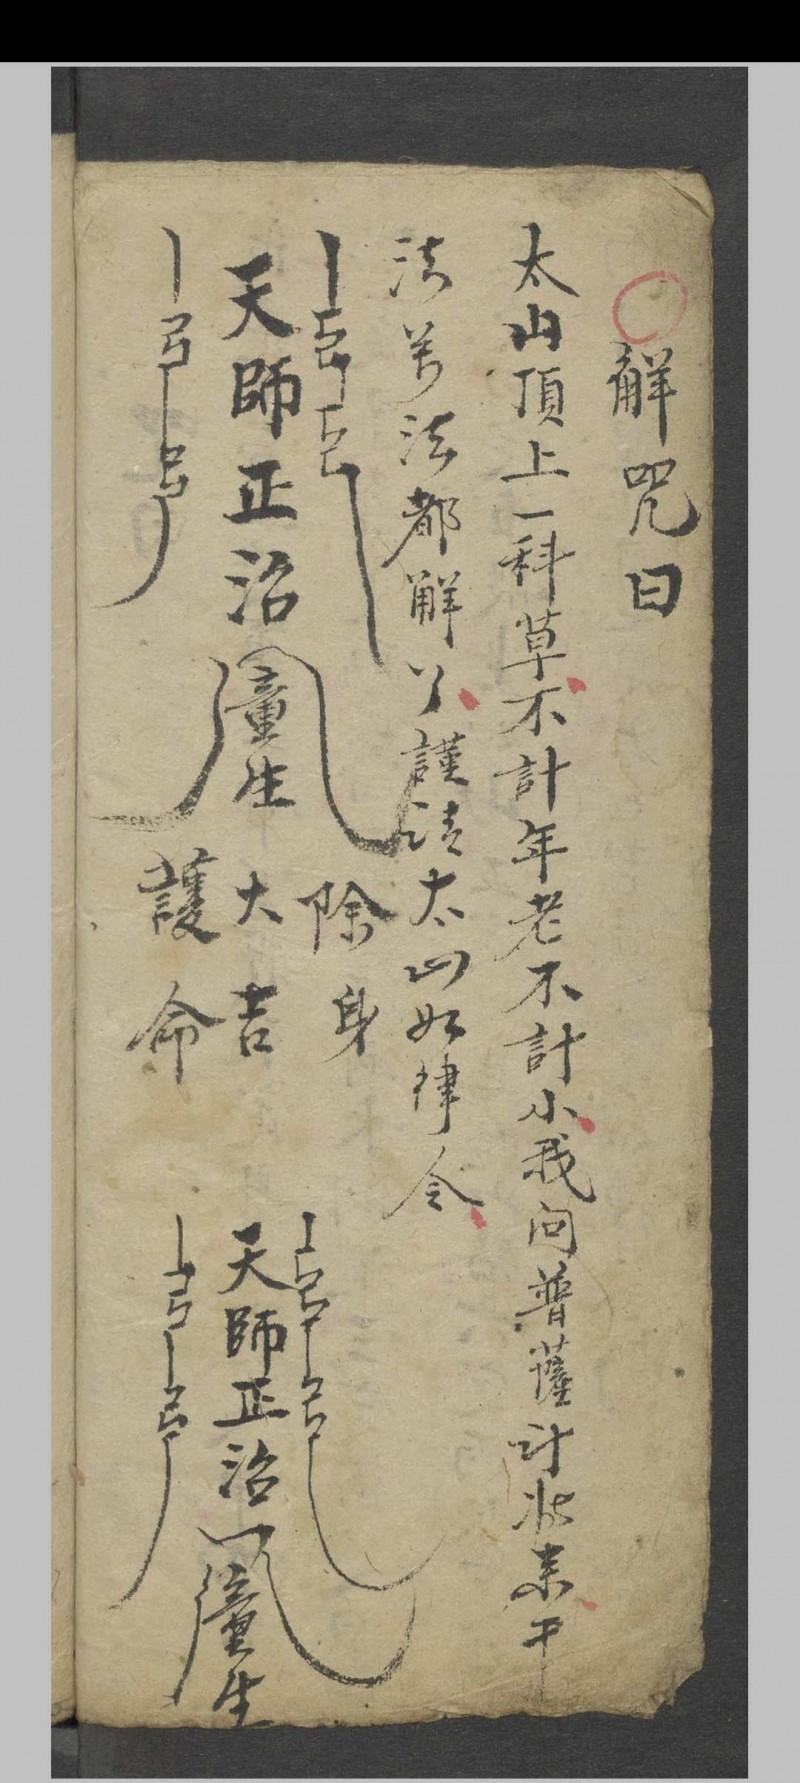 解咒曰
太山頂上一科草不計年老不計小我问普薩计将來千
法万法都解了謹请太山如律令
天師正治
童生
除身
大吉
護命
天師正治
童生